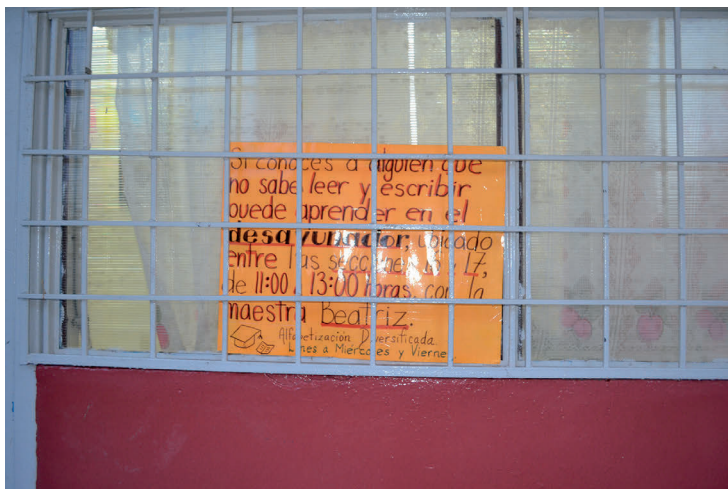 Si conoces a alguien que
no sabe leer y escribir
puede aprender en el
desayunador, ubicado
entre las secciones y 17,
de 11:00 a 13:00 horas, con la
maestra Beatriz.
Alfabetización Diversificada
Lunes a Miércoles y Viernes